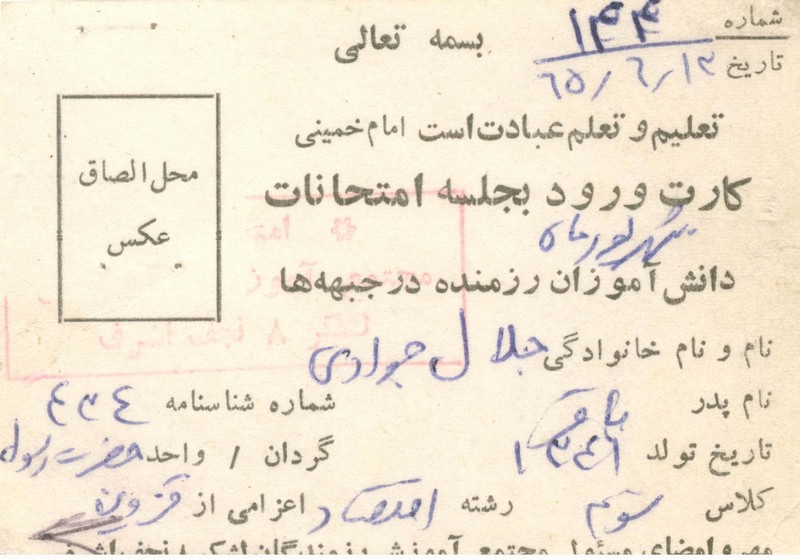 شماره ۱۴۴
بسمه تعالی
تاریخ ۶۵/۶/۱۳
تعلیم و تعلم عبادت است امام خمینی
کارت ورود بجلسه امتحانات
شهریورماه
دانش‌آموزان رزمنده در جبهه‌ها
محل الصاق
عکس
لشکر ۸ نجف اشرف
نام و نام خانوادگی جلال جوادی
نام پدر باقر شماره شناسنامه ۴۳۴
تاریخ تولد ۱۳۴۱ گردان / واحد حضرت رسول
کلاس سوم رشته اقتصاد اعزامی از قزوین
مهر و امضای مسئول مجتمع آموزش رزمندگان لشکر ۸ نجف اشرف